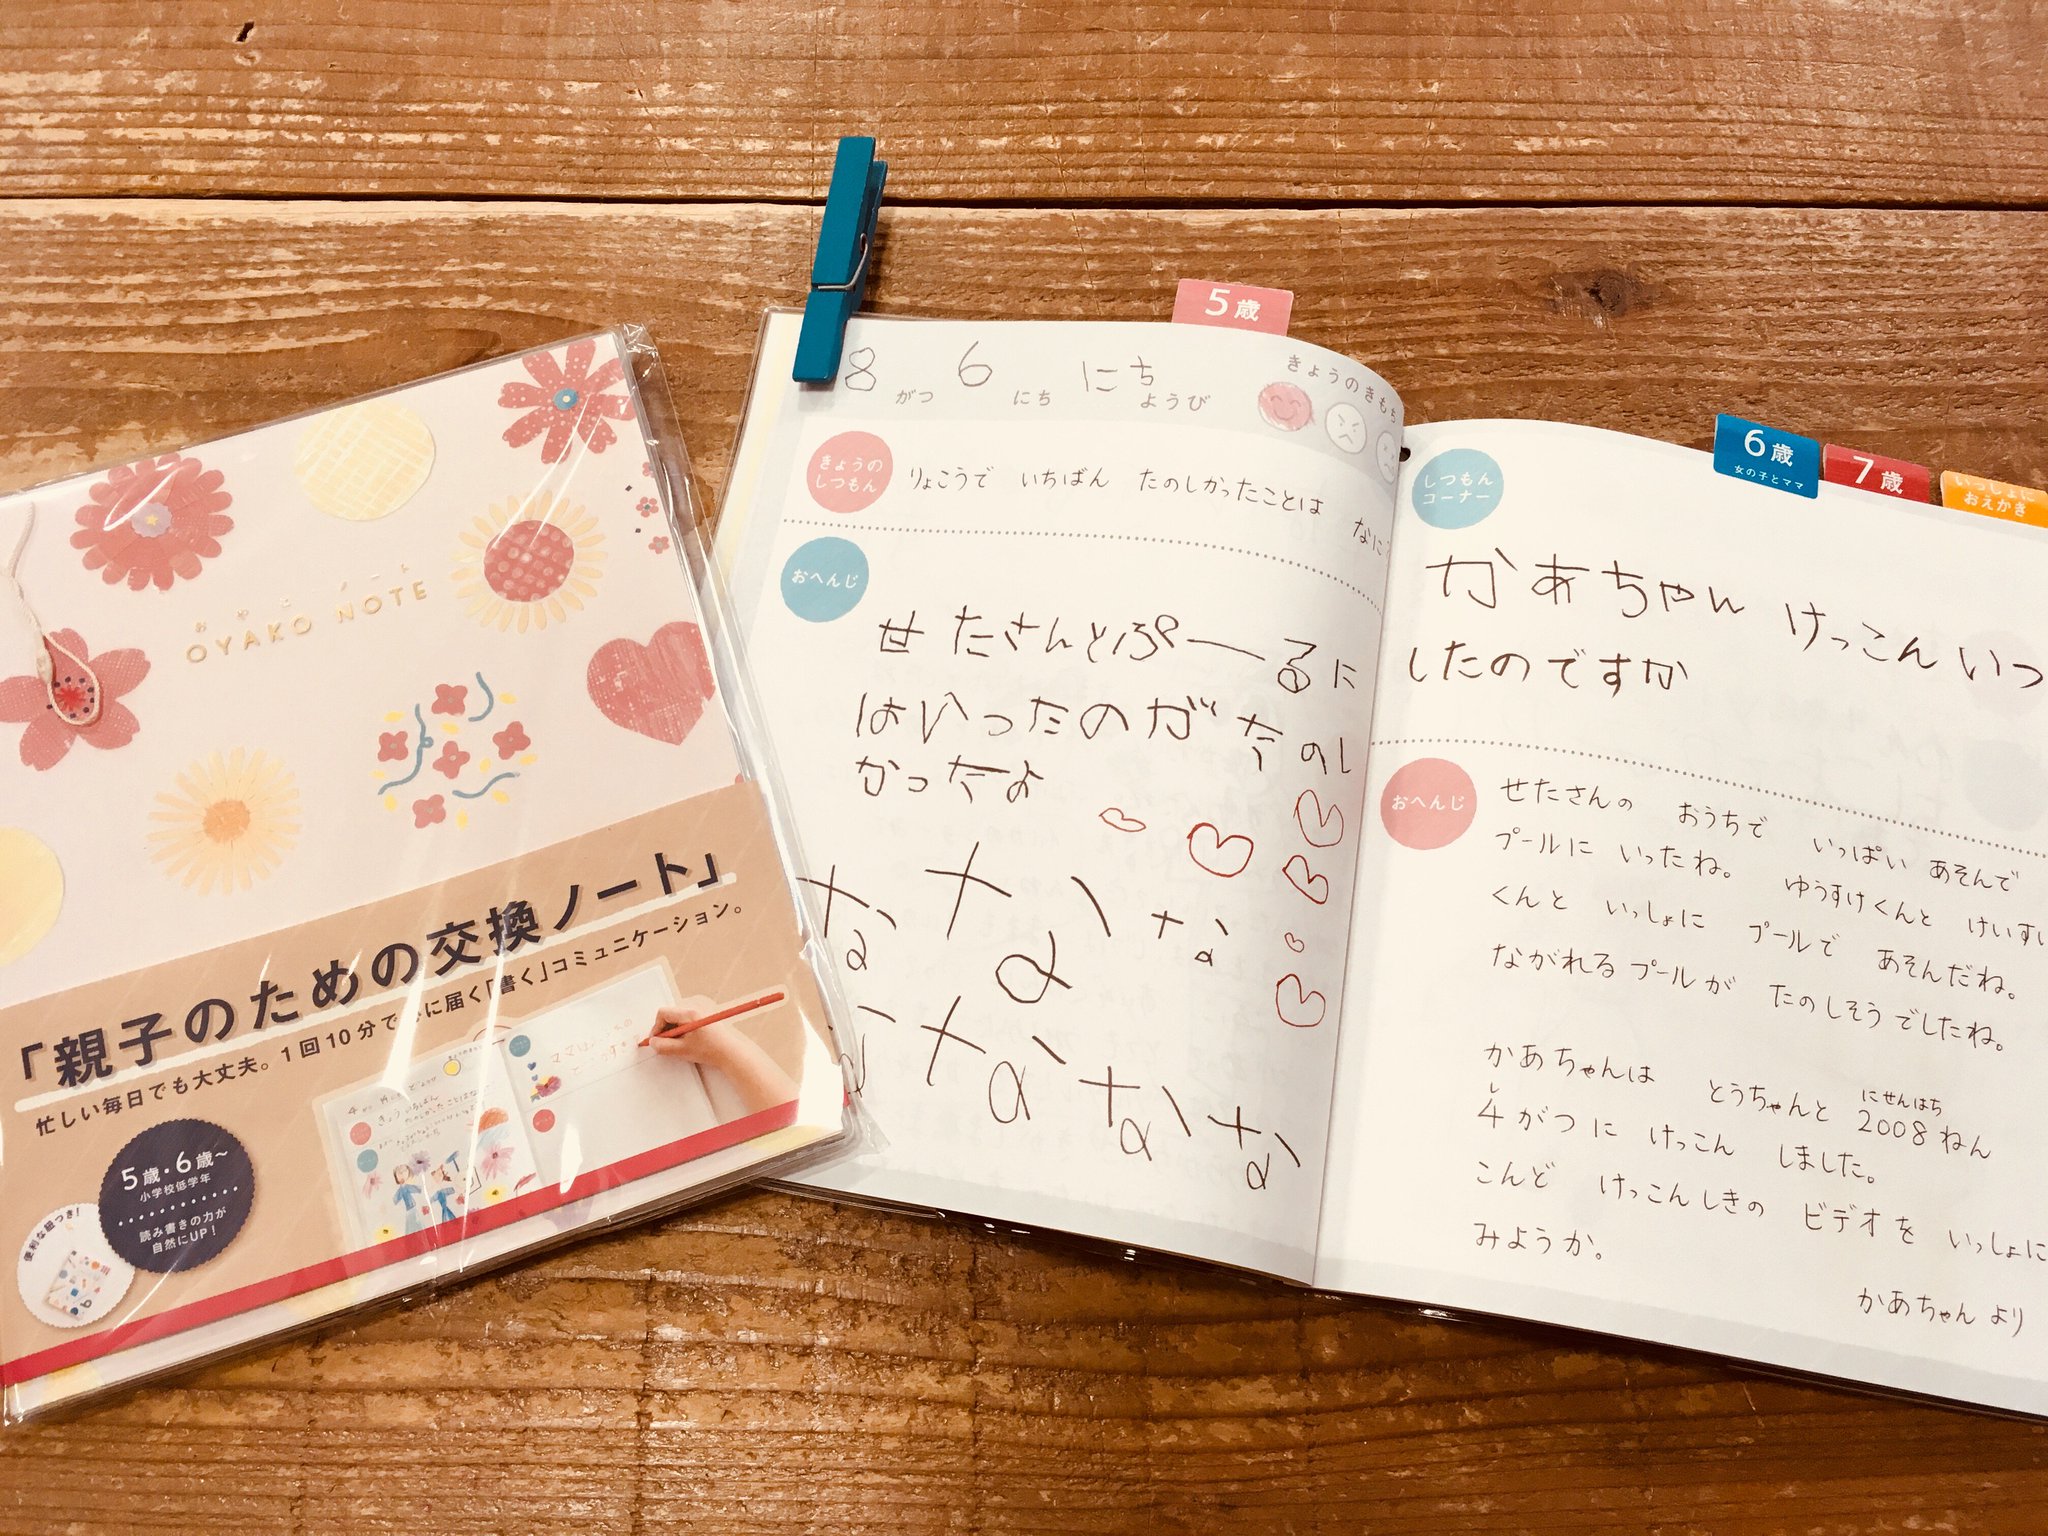 おやこノート
OYAKO NOTE
「親子のための交換ノート」
忙しい毎日でも大丈夫。1回10分で心に届く「書く」コミュニケーション。
5歳・6歳〜
小学校低学年
読み書きの力が
自然にUP!
便利な紐つき!
5歳
8がつ 6にち にちようび
きょうのきもち
きょうの
しつもん
りょこうで いちばん たのしかったことは なに?
おへんじ
せたさんとぷーるに
はいったのがたのし
かったよ
な な な
な な な
6歳
女の子とママ
7歳
いっしょに
おえかき
しつもん
コーナー
かあちゃん けっこん いつ
したのですか
おへんじ
せたさんの おうちで いっぱい あそんで
プールに いったね。 ゆうすけくんと けいすけ
くんと いっしょに プールで あそんだね。
ながれるプールが たのしそうでしたね。
かあちゃんは とうちゃんと 2008ねん
にせんはち
し
4がつに けっこん しました。
こんど けっこんしきの ビデオを いっしょに
みようか。
かあちゃんより